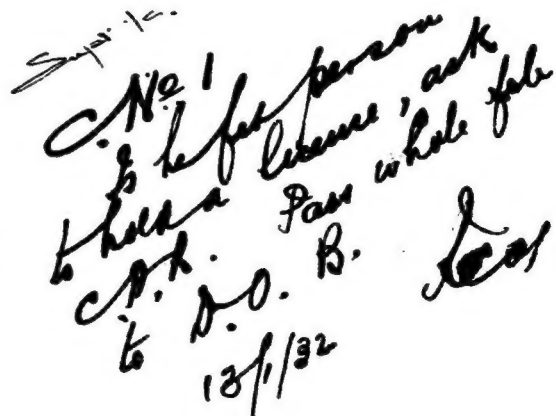 C. No 1
Is he fit person
to hold a license, ask
C.A.R. Pass whole file
to D.O. B.
13/1/32